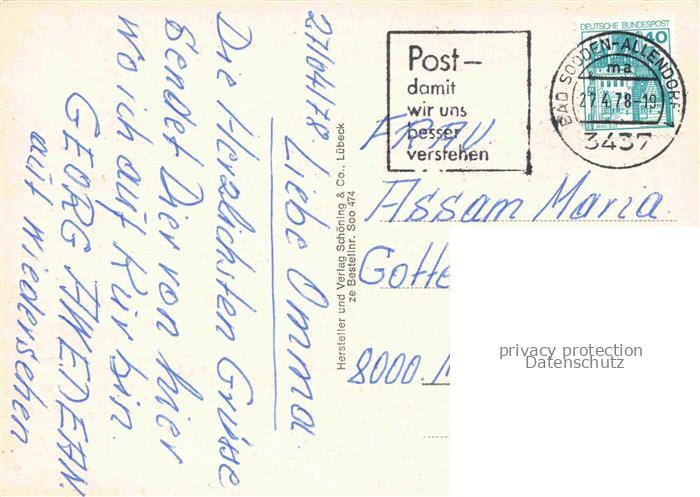 27/04/78. Liebe Omma.
Die Herzlichsten Grüsse
sendet Dier von hier
wo ich auf Kür bin.
GEORG AWEDEAN.
auf wiedersehen
Hersteller und Verlag Schöning & Co., Lübeck
ze Bestellnr. Soo 474
Post-
damit
wir uns
besser
verstehen
DEUTSCHE BUNDESPOST
40
BAD SOODEN-ALLENDORF
ma
27.4.78-19
3437
FRAU.
Assam Maria
Gotte
8000.
privacy protection
Datenschutz